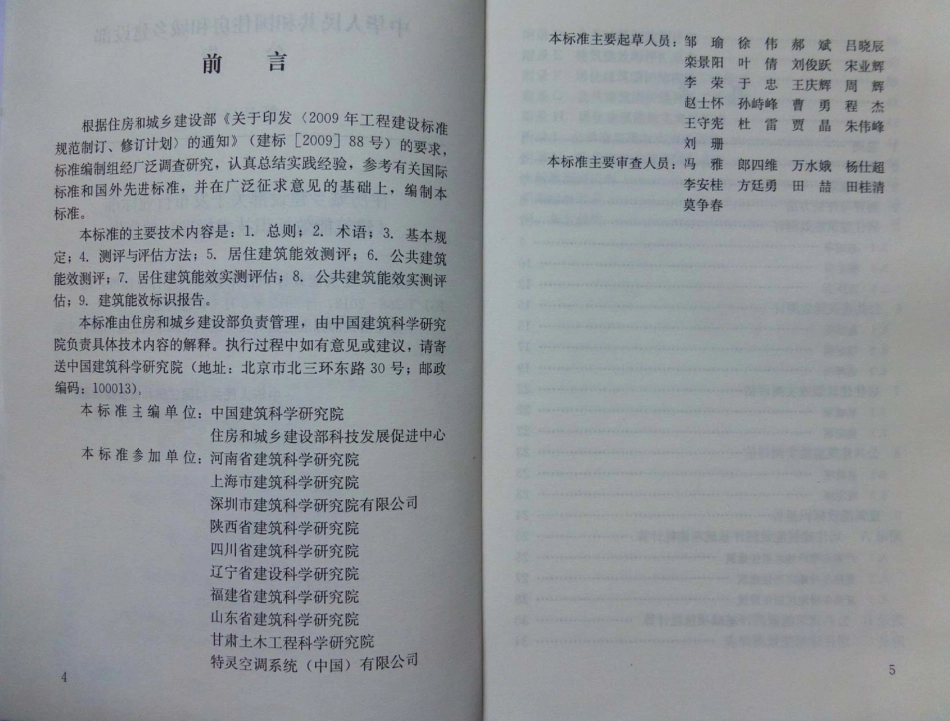 前言
根据住房和城乡建设部《关于印发〈2009年工程建设标准
规范制订、修订计划〉的通知》（建标［2009］88号）的要求，
标准编制组经广泛调查研究，认真总结实践经验，参考有关国际
标准和国外先进标准，并在广泛征求意见的基础上，编制本
标准。
本标准的主要技术内容是：1. 总则；2. 术语；3. 基本规
定；4. 测评与评估方法；5. 居住建筑能效测评；6. 公共建筑
能效测评；7. 居住建筑能效实测评估；8. 公共建筑能效实测评
估；9. 建筑能效标识报告。
本标准由住房和城乡建设部负责管理，由中国建筑科学研究
院负责具体技术内容的解释。执行过程中如有意见或建议，请寄
送中国建筑科学研究院（地址：北京市北三环东路30号；邮政
编码：100013）。
本标准主编单位：中国建筑科学研究院
住房和城乡建设部科技发展促进中心
本标准参加单位：河南省建筑科学研究院
上海市建筑科学研究院
深圳市建筑科学研究院有限公司
陕西省建筑科学研究院
四川省建筑科学研究院
辽宁省建设科学研究院
福建省建筑科学研究院
山东省建筑科学研究院
甘肃土木工程科学研究院
特灵空调系统（中国）有限公司
4
本标准主要起草人员：邹瑜 徐伟 郝斌 吕晓辰
栾景阳 叶倩 刘俊跃 宋业辉
李荣 于忠 王庆辉 周辉
赵士怀 孙峙峰 曹勇 程杰
王守宪 杜雷 贾晶 朱伟峰
刘珊
本标准主要审查人员：冯雅 郎四维 万水娥 杨仕超
李安桂 方廷勇 田喆 田桂清
莫争春
5